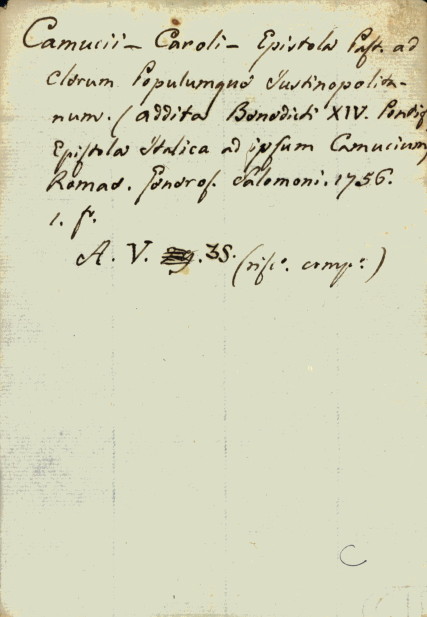 Camucii - Caroli - Epistola Past. ad
Clerum Populumque Justinopolita-
num. (addita Benedicti XIV. Pontif.
Epistola Italica ad ipsum Camucium
Romae. Generos. Salomoni. 1756.
1. f.
A. V. 35. (risc. comp.)
C